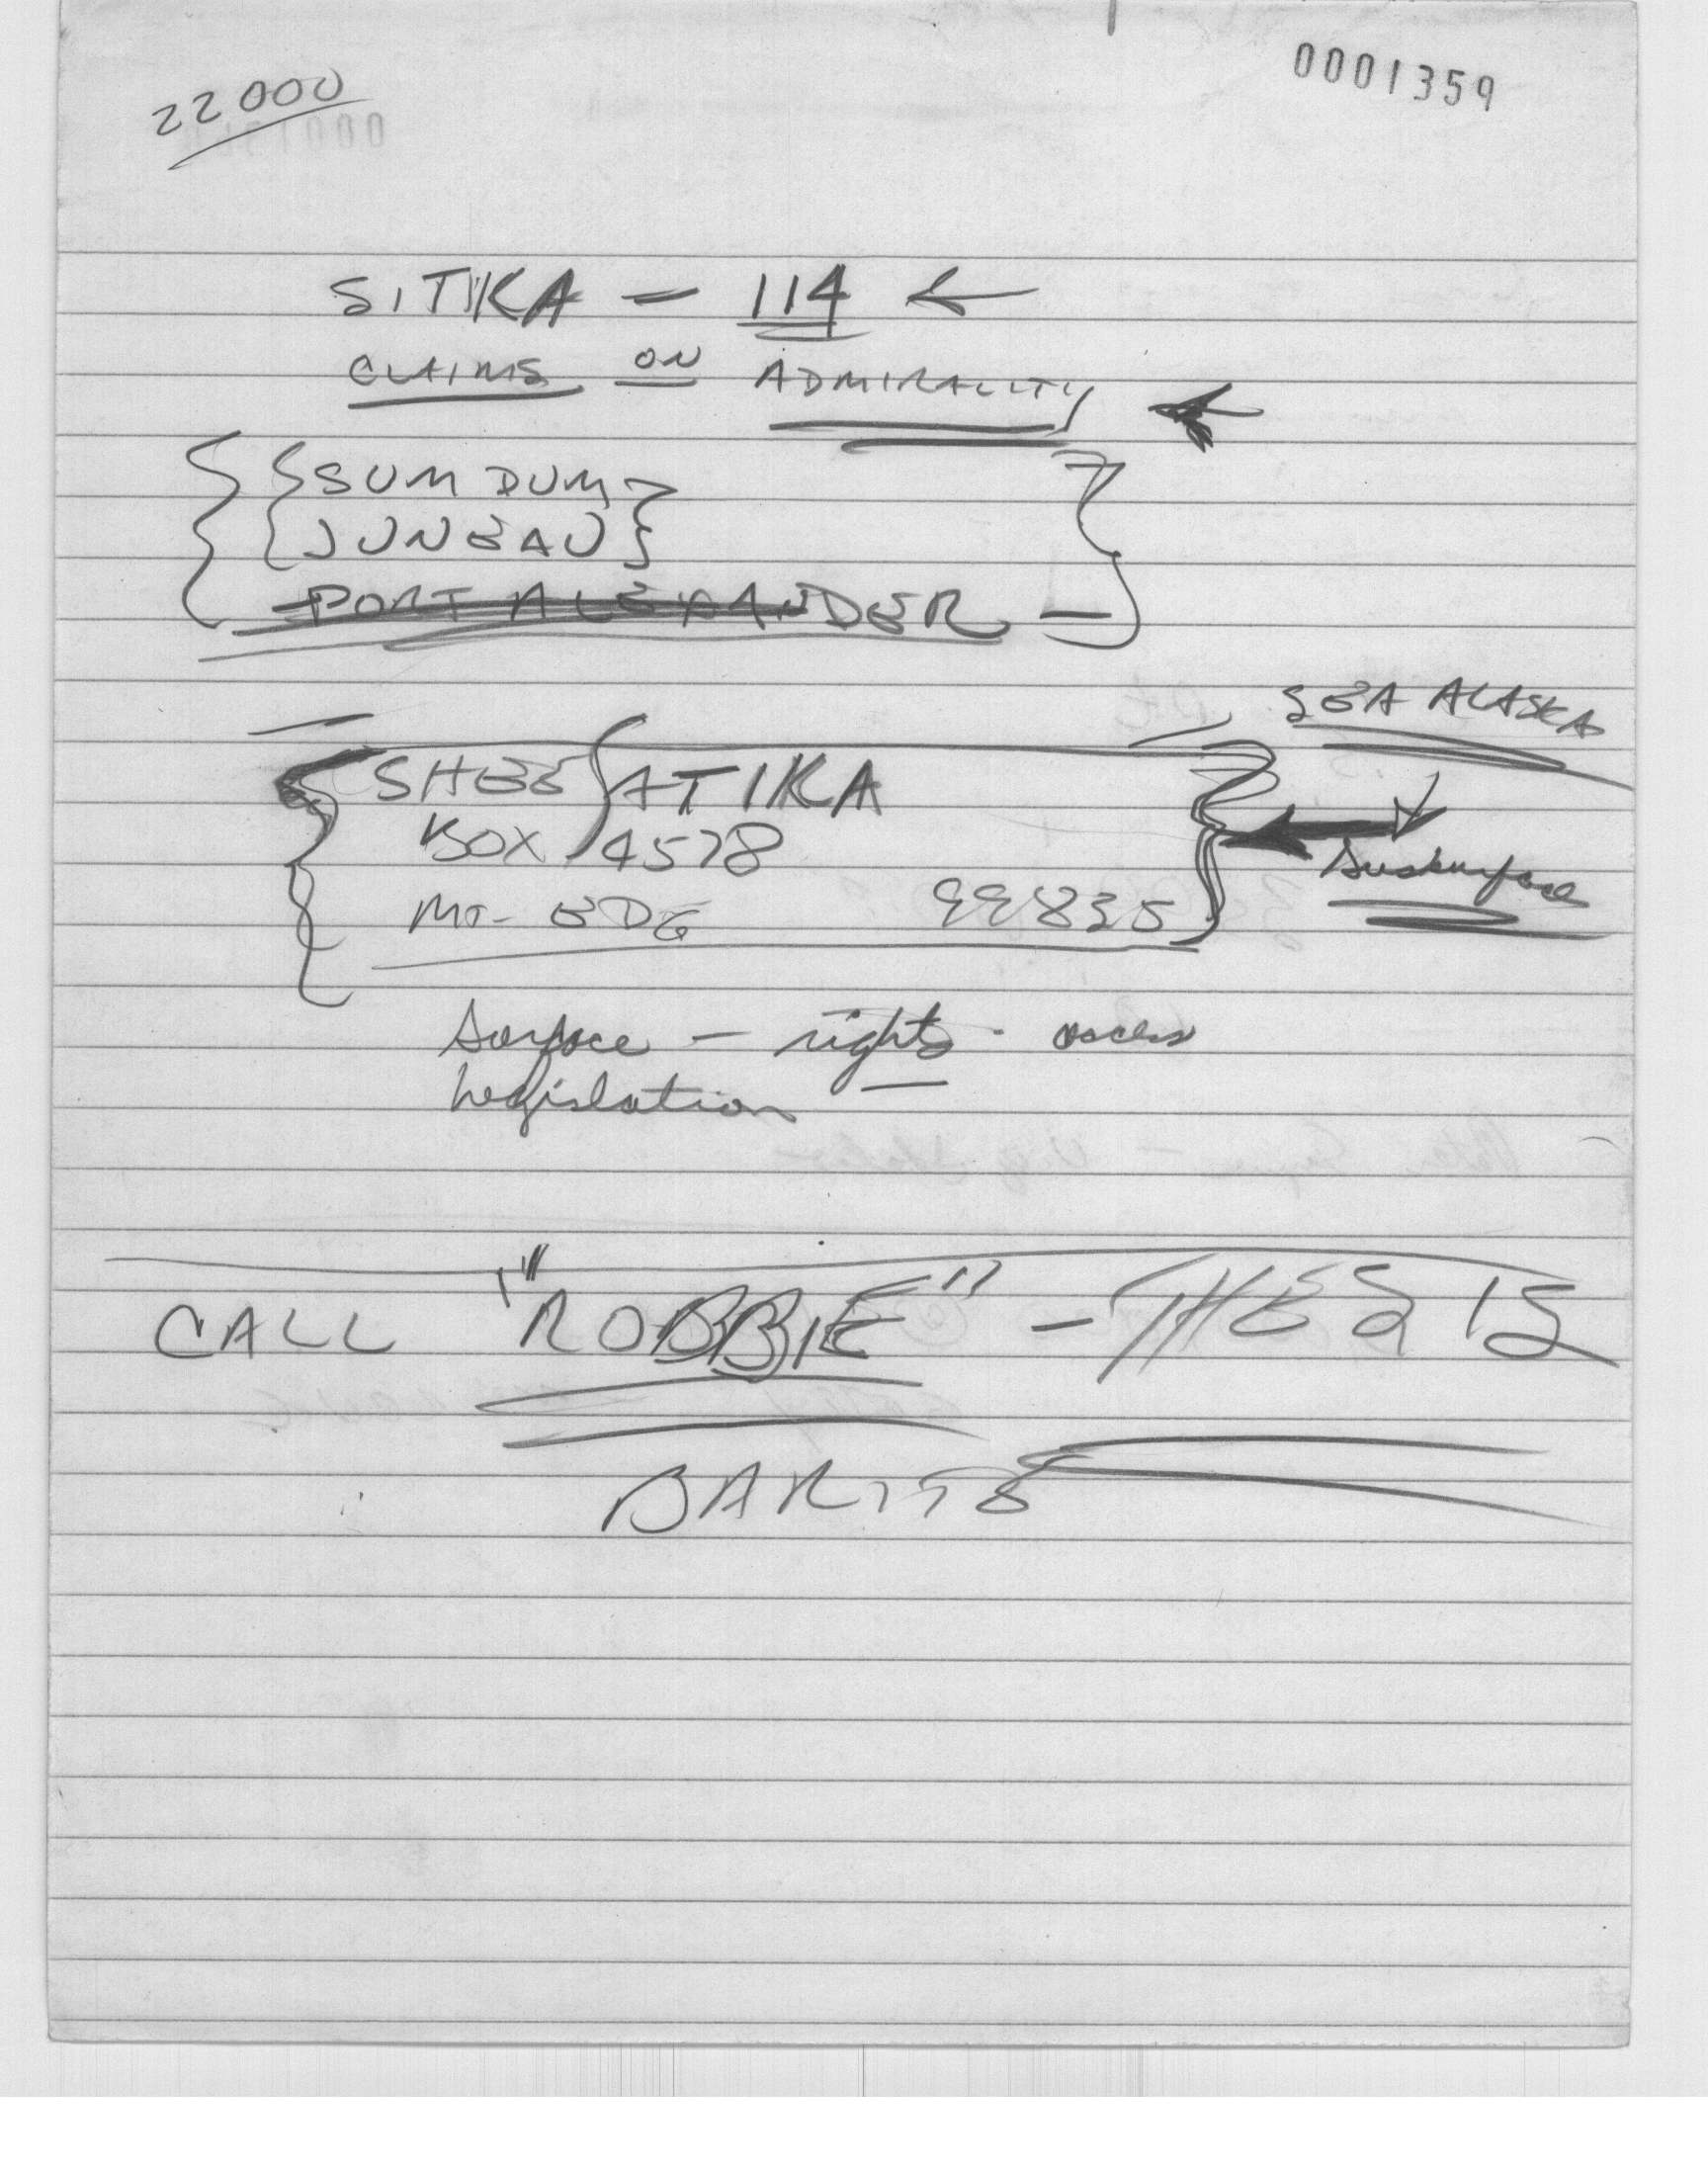 22000
0001359
SITKA – 114 ←
CLAIMS ON ADMIRALITY ←
SUM DUM
JUNEAU
PORT ALEXANDER –
SEA ALASKA
SHEE ATIKA
BOX 4578
MT. EDG 99835
Subsurface
Surface – rights - access
Legislation
CALL "ROBBIE" – THES IS
BARITE